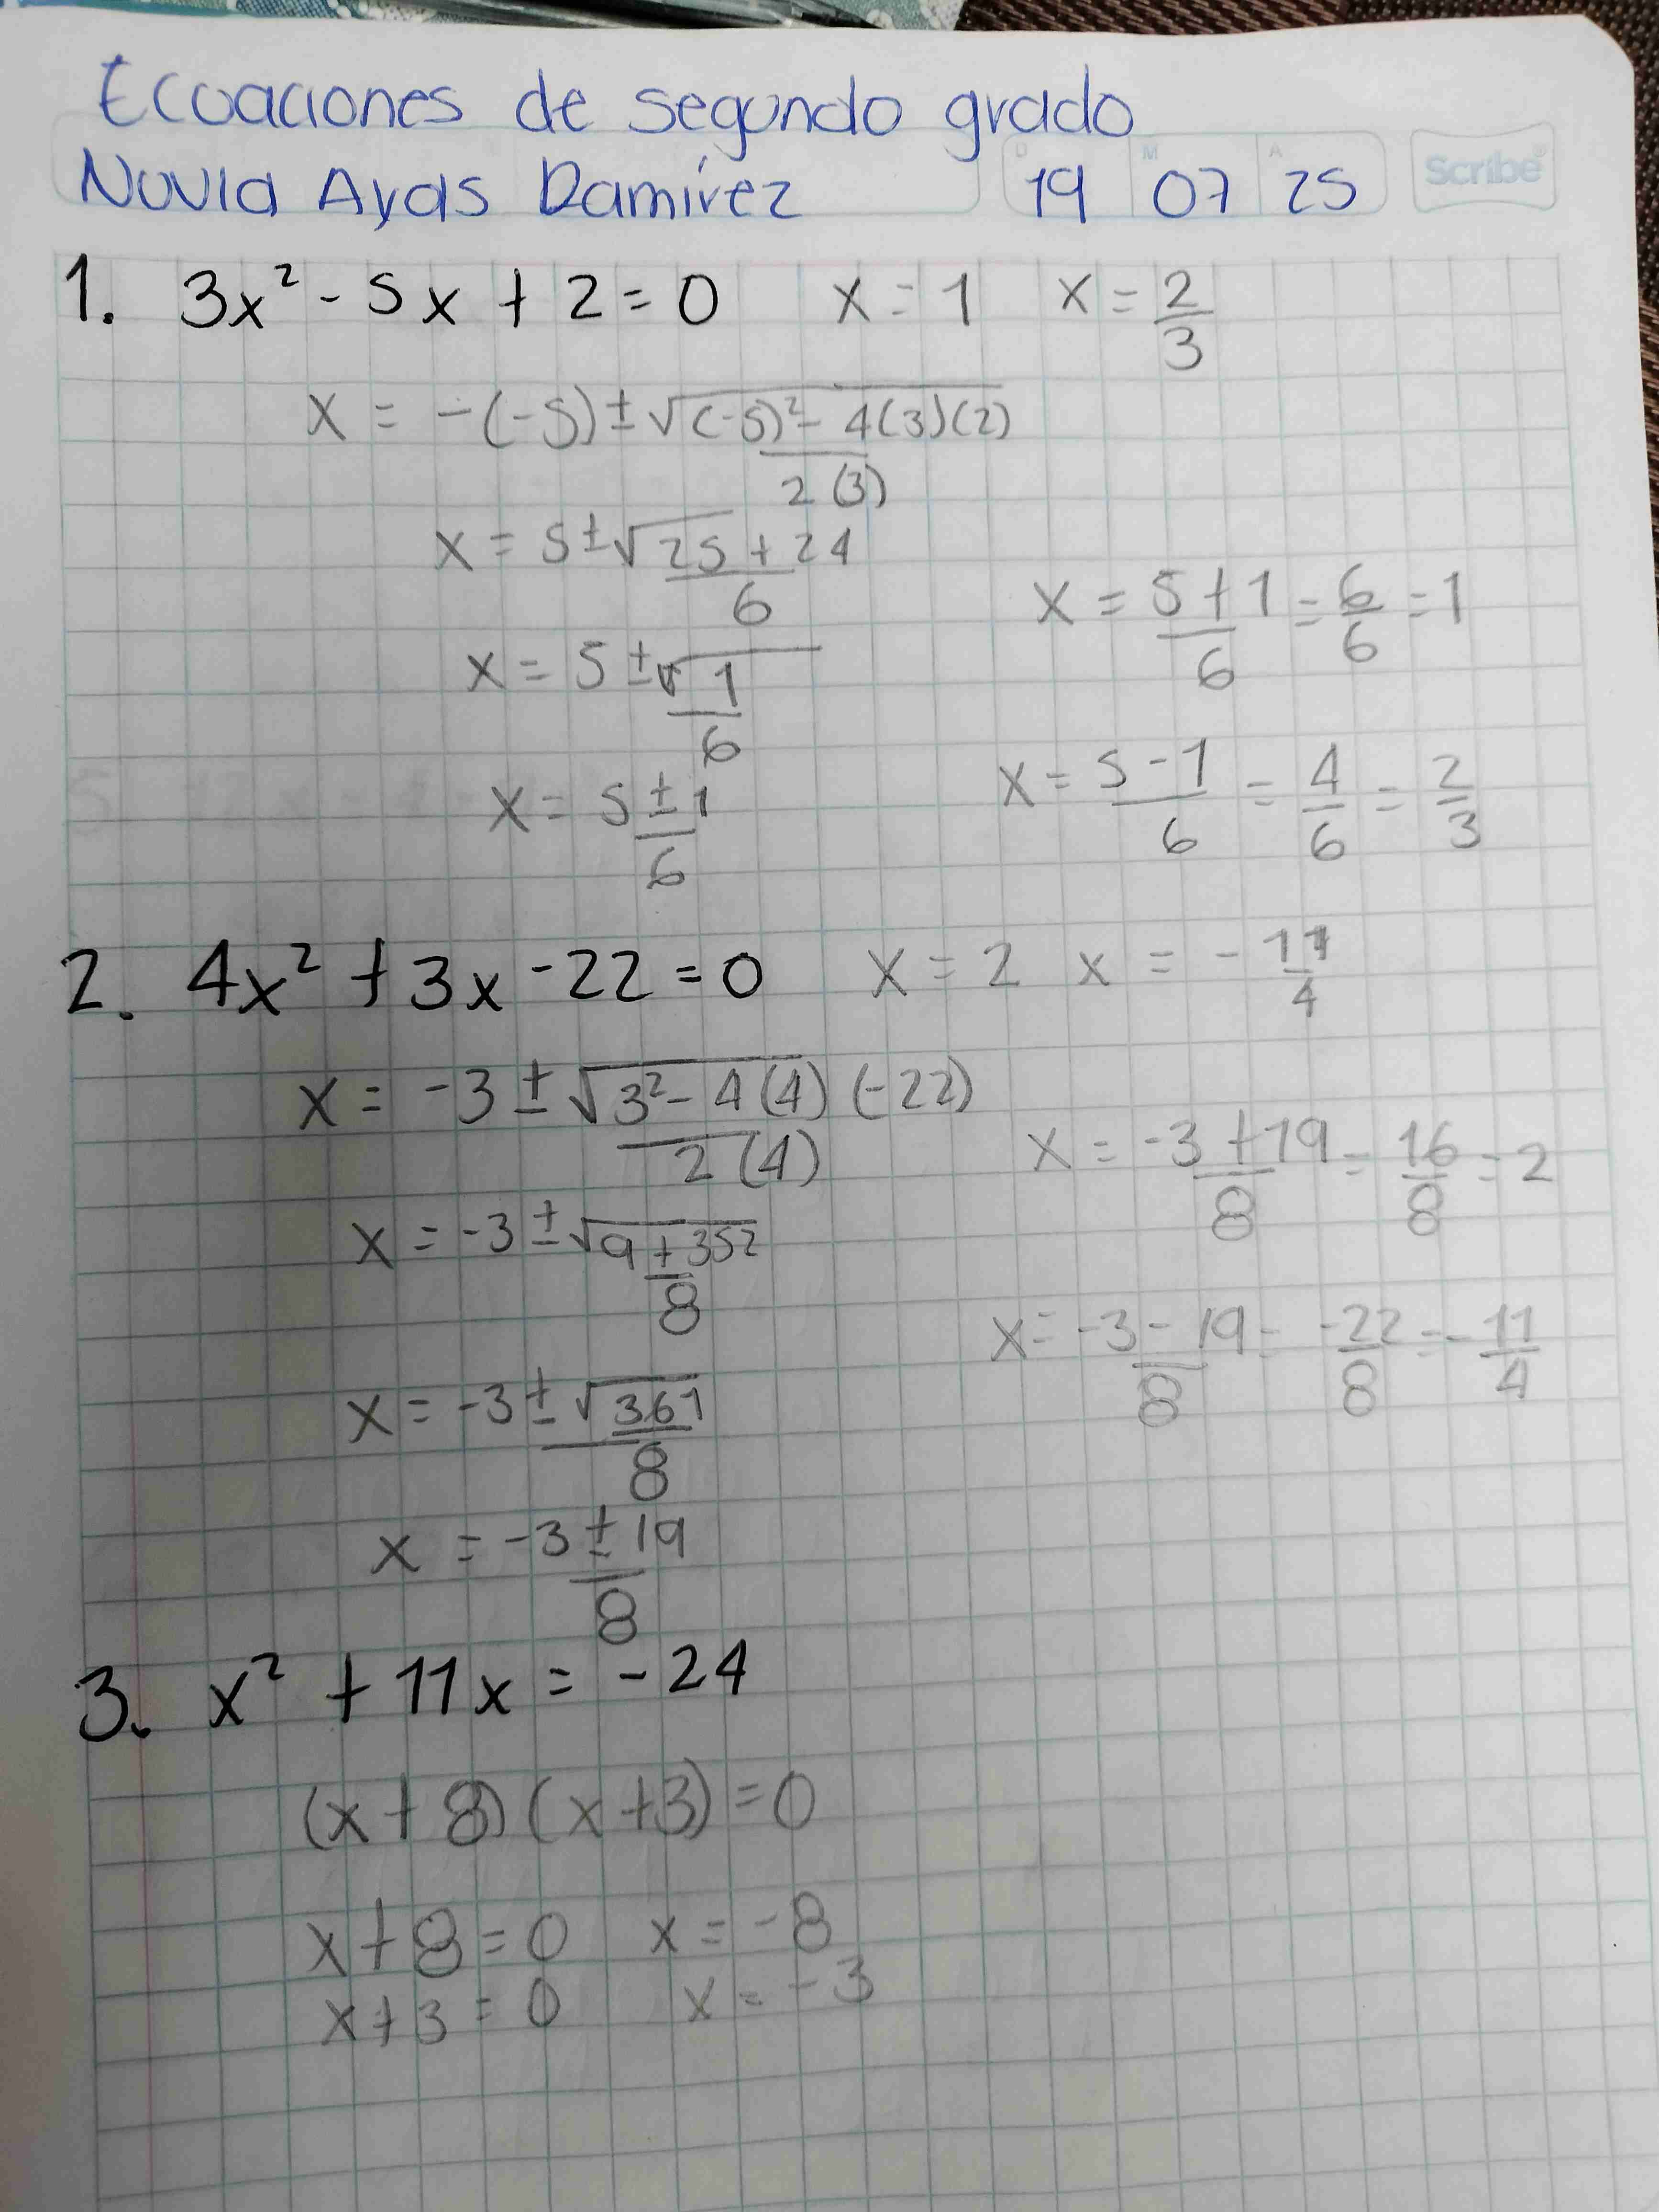 Ecuaciones de segundo grado
D M A
Scribe®
Ayas Ramírez 19 07 25
1. 3x² - 5x + 2 = 0 x = 1 x = 2/3
x = -(-5) ± √(-5)² - 4(3)(2)
2(3)
x = 5 ± √25 + 24
6
x = 5 ± √1
6
x = 5 ± 1
6
x = 5 + 1 = 6 = 1
6 6
x = 5 - 1 = 4 = 2
6 6 3
2. 4x² + 3x - 22 = 0 x = 2 x = - 11/4
x = -3 ± √3² - 4(4)(-22)
2(4)
x = -3 ± √9 + 352
8
x = -3 ± √361
8
x = -3 ± 19
8
x = -3 + 19 = 16 = 2
8 8
x = -3 - 19 = -22 = - 11
8 8 4
3. x² + 11x = -24
(x + 8)(x + 3) = 0
x + 8 = 0 x = -8
x + 3 = 0 x = -3